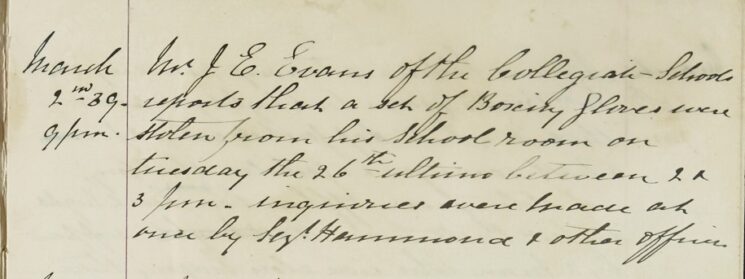 March Mr. J. E. Evans of the Collegiate Schools
2nd 39. reports that a set of Boxing Gloves were
9 pm. stolen from his School room on
tuesday the 26th ultimo between 2 &
3 pm. inquiries were made at
once by Sergt. Hammond & other officers